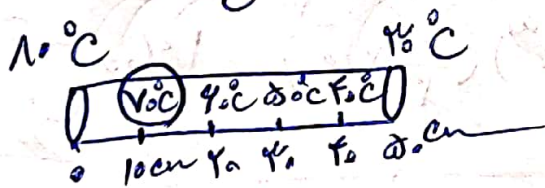 ۸۰°C ۳۰°C
۷۰°C ۶۰°C ۵۰°C ۴۰°C
۰ ۱۰cm ۲۰ ۳۰ ۴۰ ۵۰cm